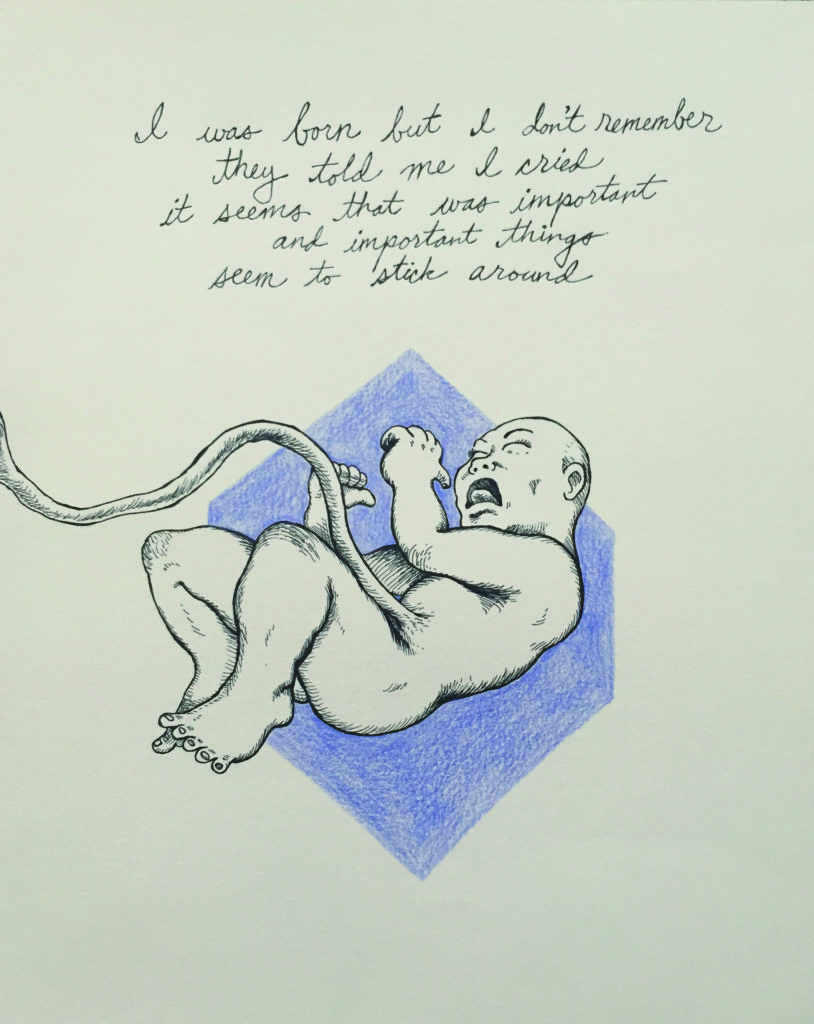 I was born but I don't remember
they told me I cried
it seems that was important
and important things
seem to stick around